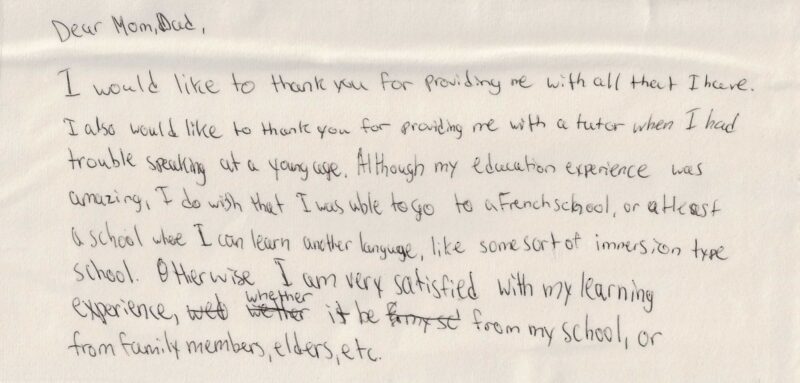 Dear Mom, Dad,
I would like to thank you for providing me with all that I have.
I also would like to thank you for providing me with a tutor when I had
trouble speaking at a young age. Although my education experience was
amazing, I do wish that I was able to go to a French school, or atleast
a school whee I can learn another language, like some sort of immersion type
school. Otherwise, I am very satisfied with my learning
experience, whether it be from my school, or
from family members, elders, etc.